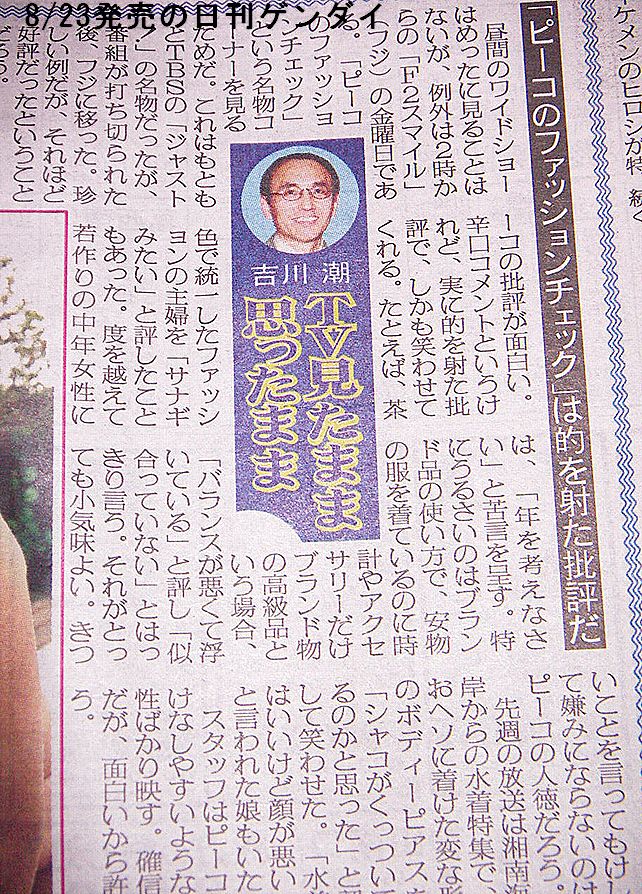 8/23発売の日刊ゲンダイ
ケメンのヒロシが特
「ピーコのファッションチェック」は的を射た批評だ
昼間のワイドショー
はめったに見ることは
ないが、例外は2時か
らの「F2スマイル」
(フジ)の金曜日であ
る。「ピーコ
のファッショ
ンチェック」
という名物コ
ーナーを見る
ためだ。これはもとも
とTBSの「ジャスト
」の名物だったが、
番組が打ち切られた
後、フジに移った。珍
しい例だが、それほど
好評だったということ
だろう。
吉川 潮
TV見たまま
思ったまま
ーコの批評が面白い。
辛口コメントというけ
れど、実に的を射た批
評で、しかも笑わせて
くれる。たとえば、茶
色で統一したファッシ
ョンの主婦を「サナギ
みたい」と評したこと
もあった。度を越えて
若作りの中年女性に
は、「年を考えなさ
い」と苦言を呈す。特
にうるさいのはブラン
ド品の使い方で、安物
の服を着ているのに時
計やアクセ
サリーだけ
ブランド物
の高級品と
いう場合、
「バランスが悪くて浮
いている」と評し「似
合っていない」とはっ
きり言う。それがとっ
ても小気味よい。きつ
いことを言ってもけし
て嫌みにならないの
ピーコの人徳だろう
先週の放送は湘南
岸からの水着特集で
おヘソに着けた変な
のボディーピアス
「シャコがくっつい
るのかと思った」と
して笑わせた。「水
はいいけど顔が悪い
と言われた娘もいた
スタッフはピーコ
けなしやすいような
性ばかり映す。確信
だが、面白いから許
う。